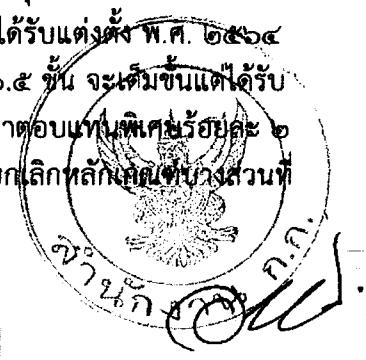 ได้รับแต่งตั้ง พ.ศ. ๒๕๖๔
.๕ ขั้น จะเต็มขั้นแต่ได้รับ
าตอบแทนพิเศษร้อยละ ๒
ยกเลิกหลักเกณฑ์บางส่วนที่
สำนักงาน ก.ก.